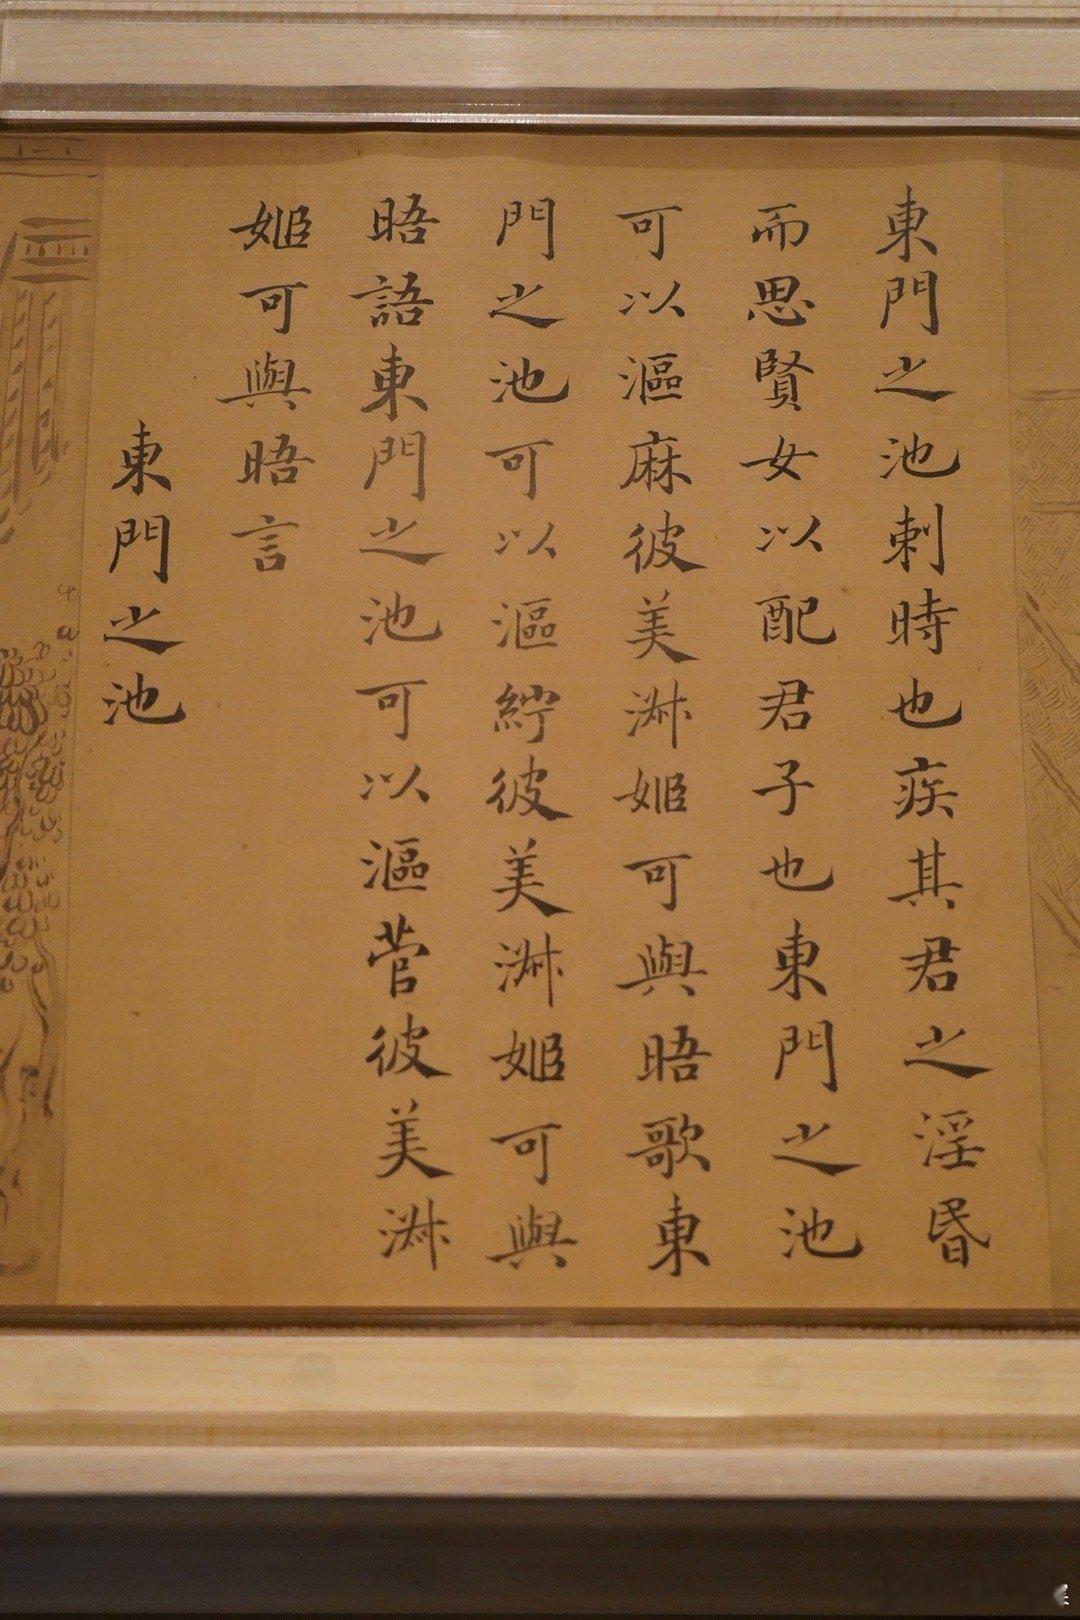 東門之池刺時也疾其君之淫昏
而思賢女以配君子也東門之池
可以漚麻彼美淑姬可與晤歌東
門之池可以漚紵彼美淑姬可與
晤語東門之池可以漚菅彼美淑
姬可與晤言
東門之池